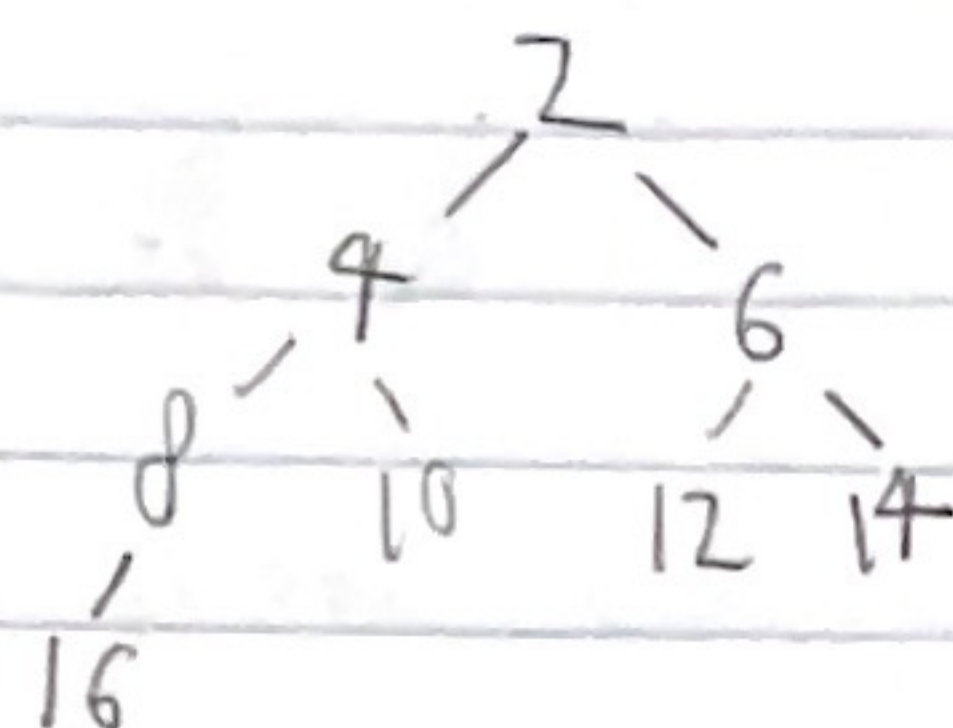 2
4 6
8 10 12 14
16